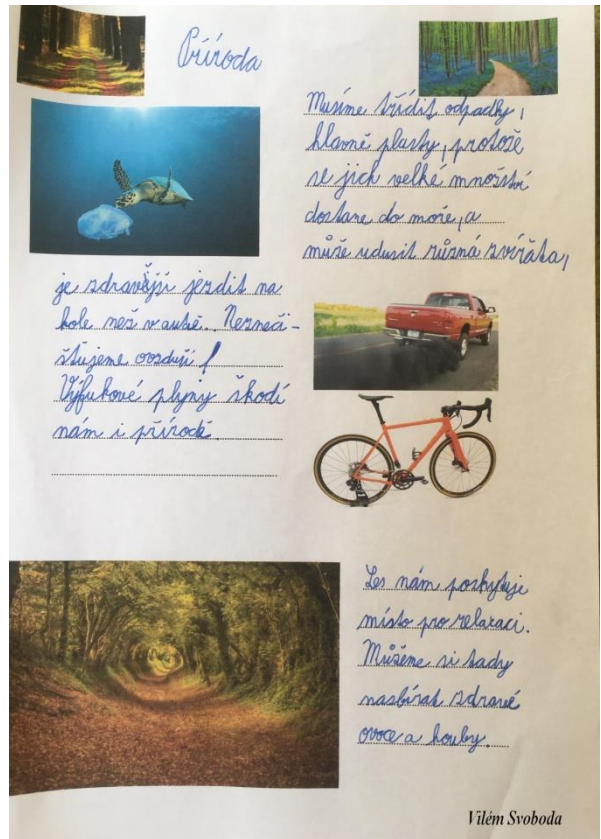 Příroda
Musíme třídit odpadky,
hlavně plasty, protože
se jich velké množství
dostane do moře, a
může udusit různá zvířata,
je zdravější jezdit na
kole než v autě. Nezneči-
štujeme ovzduší!
Výfukové plyny škodí
nám i přírodě.
Les nám poskytuje
místo pro relaxaci.
Můžeme si tady
nasbírat zdravé
ovoce a houby.
Vilém Svoboda